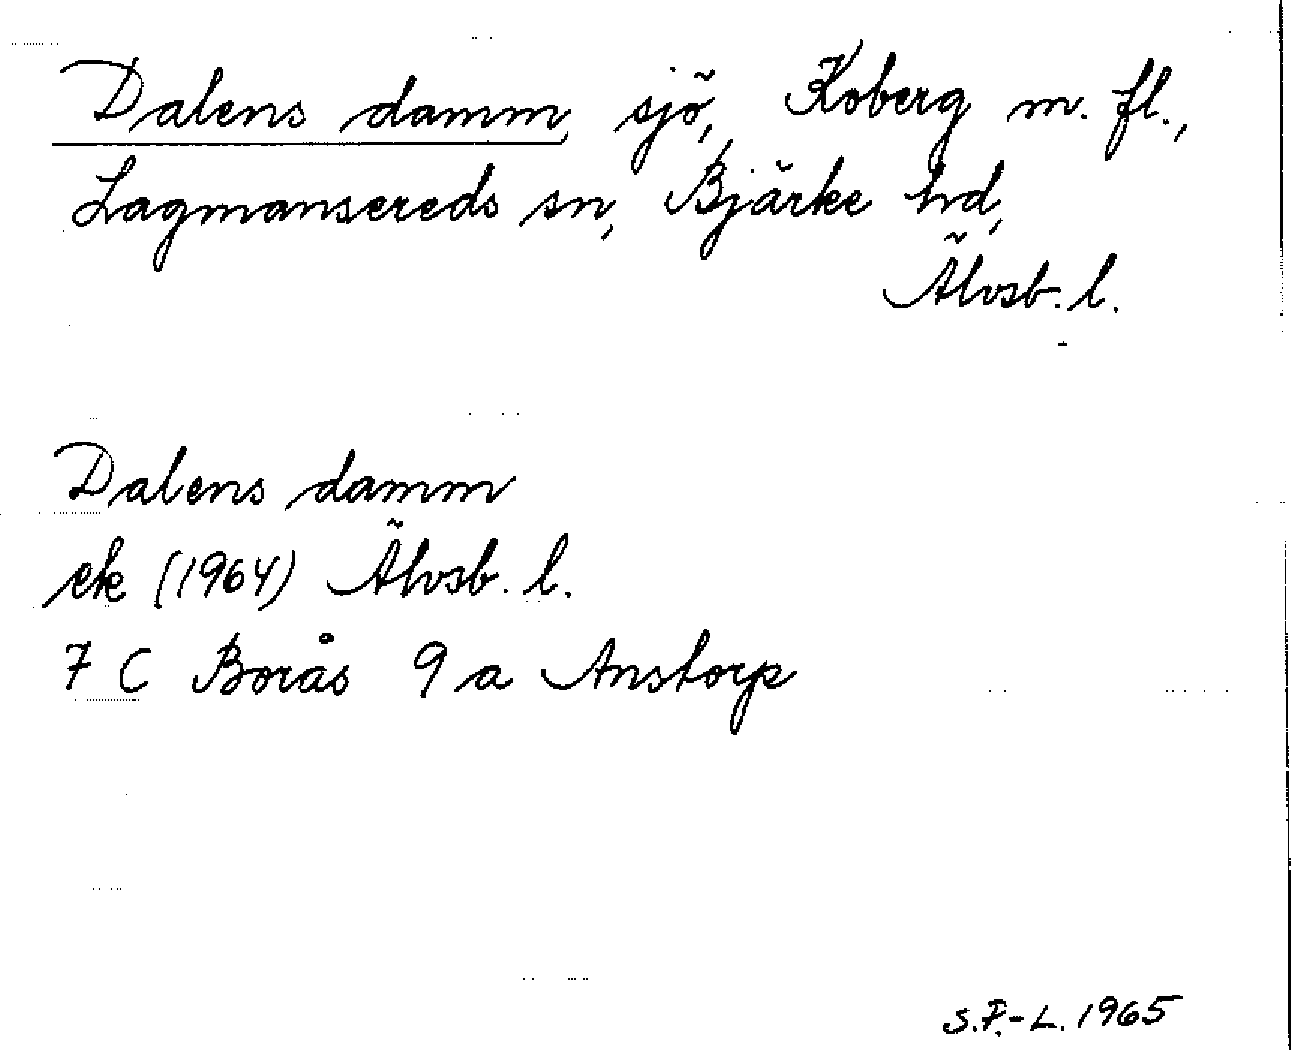 Dalens damm, sjö, Koberg m. fl.,
Lagmansereds sn, Bjärke hd,
Älvsb. l.
Dalens damm
ek (1964) Älvsb. l.
7 C Borås 9 a Anstorp
S.F.-L. 1965